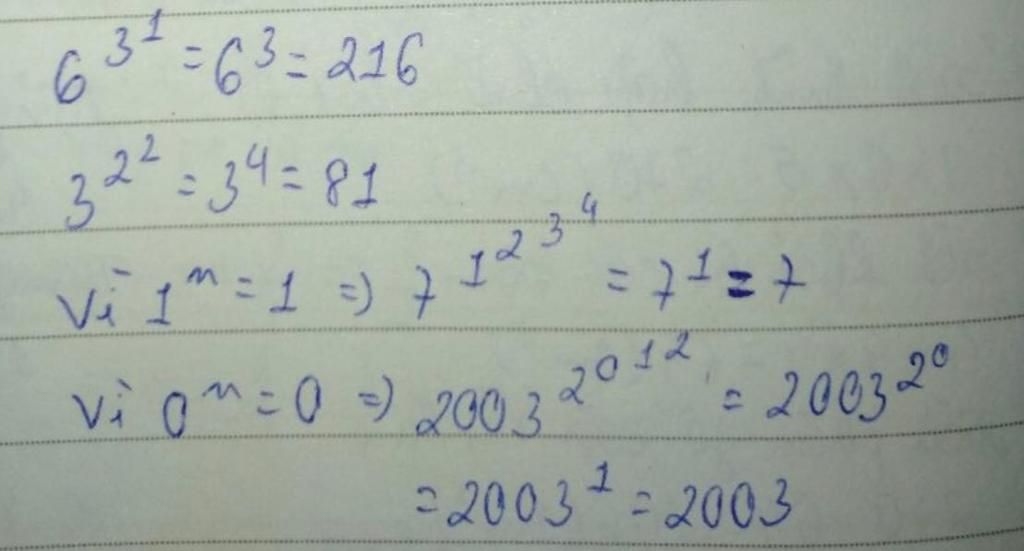 6^{3^{1}} = 6^{3} = 216
3^{2^{2}} = 3^{4} = 81
Vì 1^{n} = 1 => 7^{1^{2^{3^{4}}}} = 7^{1} = 7
Vì 0^{n} = 0 => 2003^{2^{0^{1^{2}}}} = 2003^{2^{0}}
= 2003^{1} = 2003